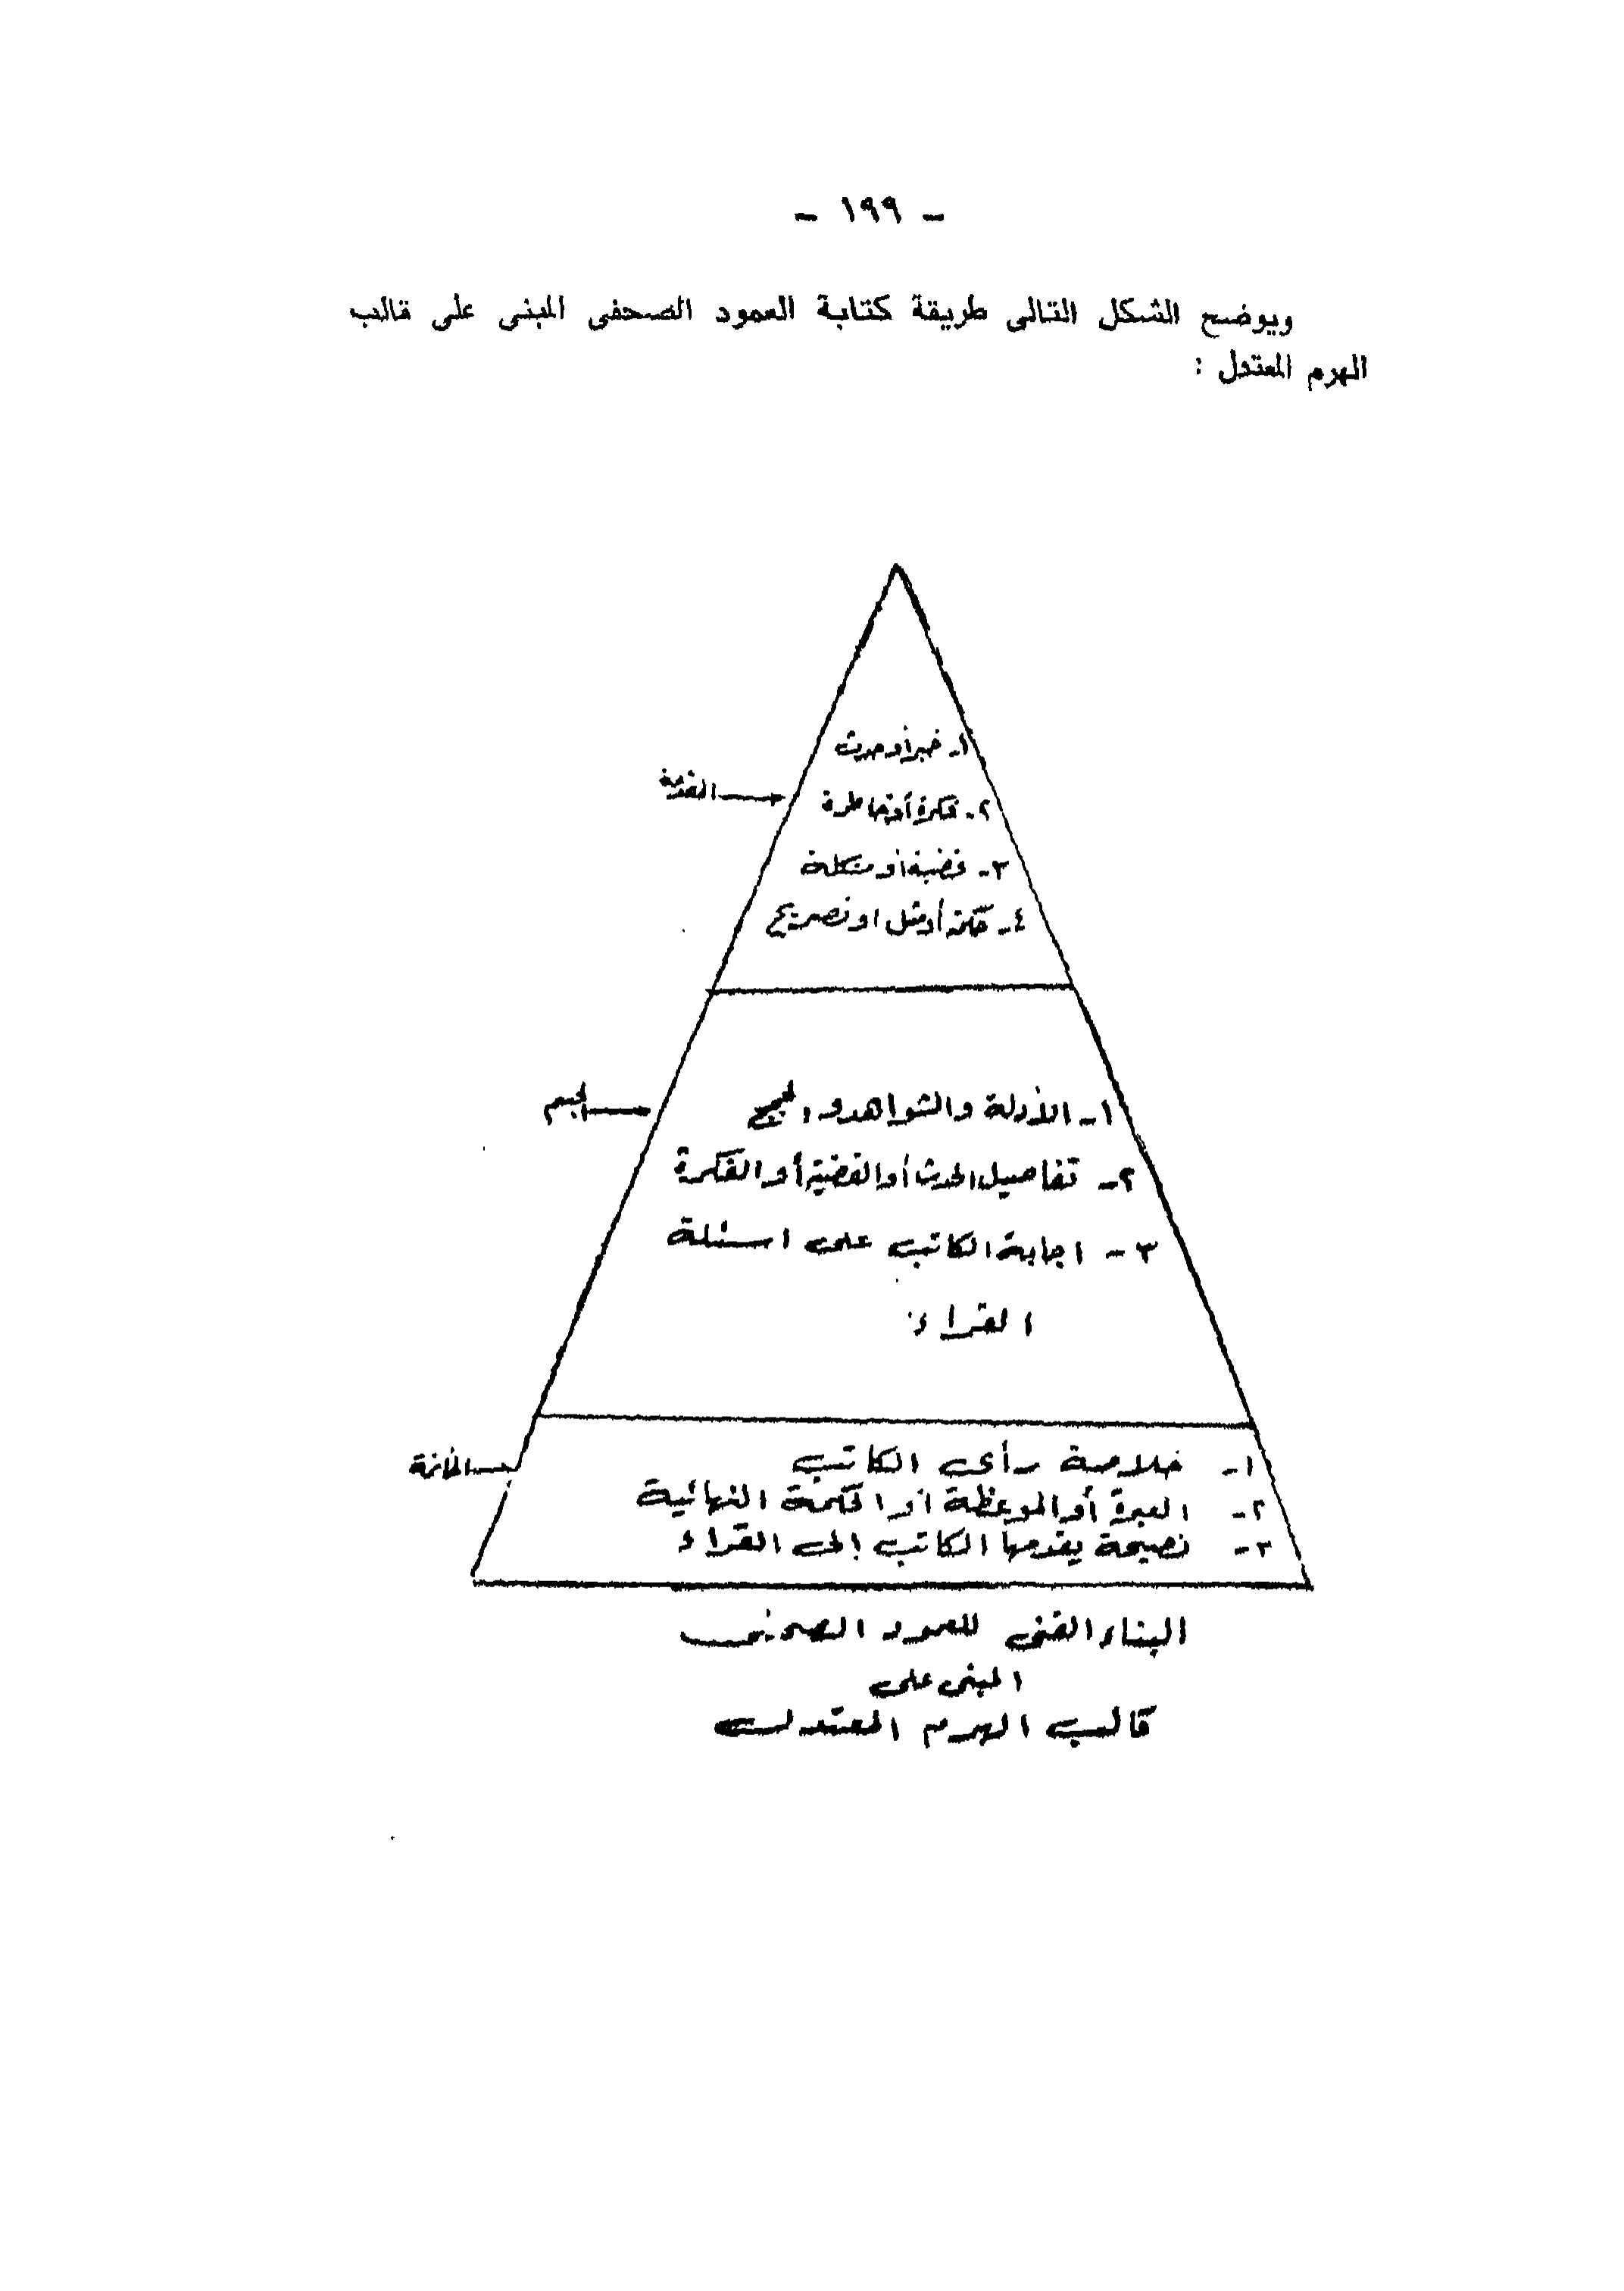 - ١٩٩ -
ويوضح الشكل التالى طريقة كتابة العمود الصحفى المبنى على قالب
الهرم المعتدل :
١- خبر أو حدث
المقدمة
٢- فكرة أو خاطرة
٣- قضية أو مشكلة
٤- حكمة أو مثل او تصريح
الجسم
١- الأدلة والشواهد والحجج
٢- تفاصيل الحدث أو القضية أو الفكرة
٣- اجابة الكاتب على اسئلة
القراء
الخاتمة
١- خلاصة رأى الكاتب
٢- العبرة أو الموعظة أو الحكمة النهائية
٣- نصيحة يقدمها الكاتب إلى القراء
البناء الفنى للعمود الصحفى
المبنى على
قالب الهرم المعتدل